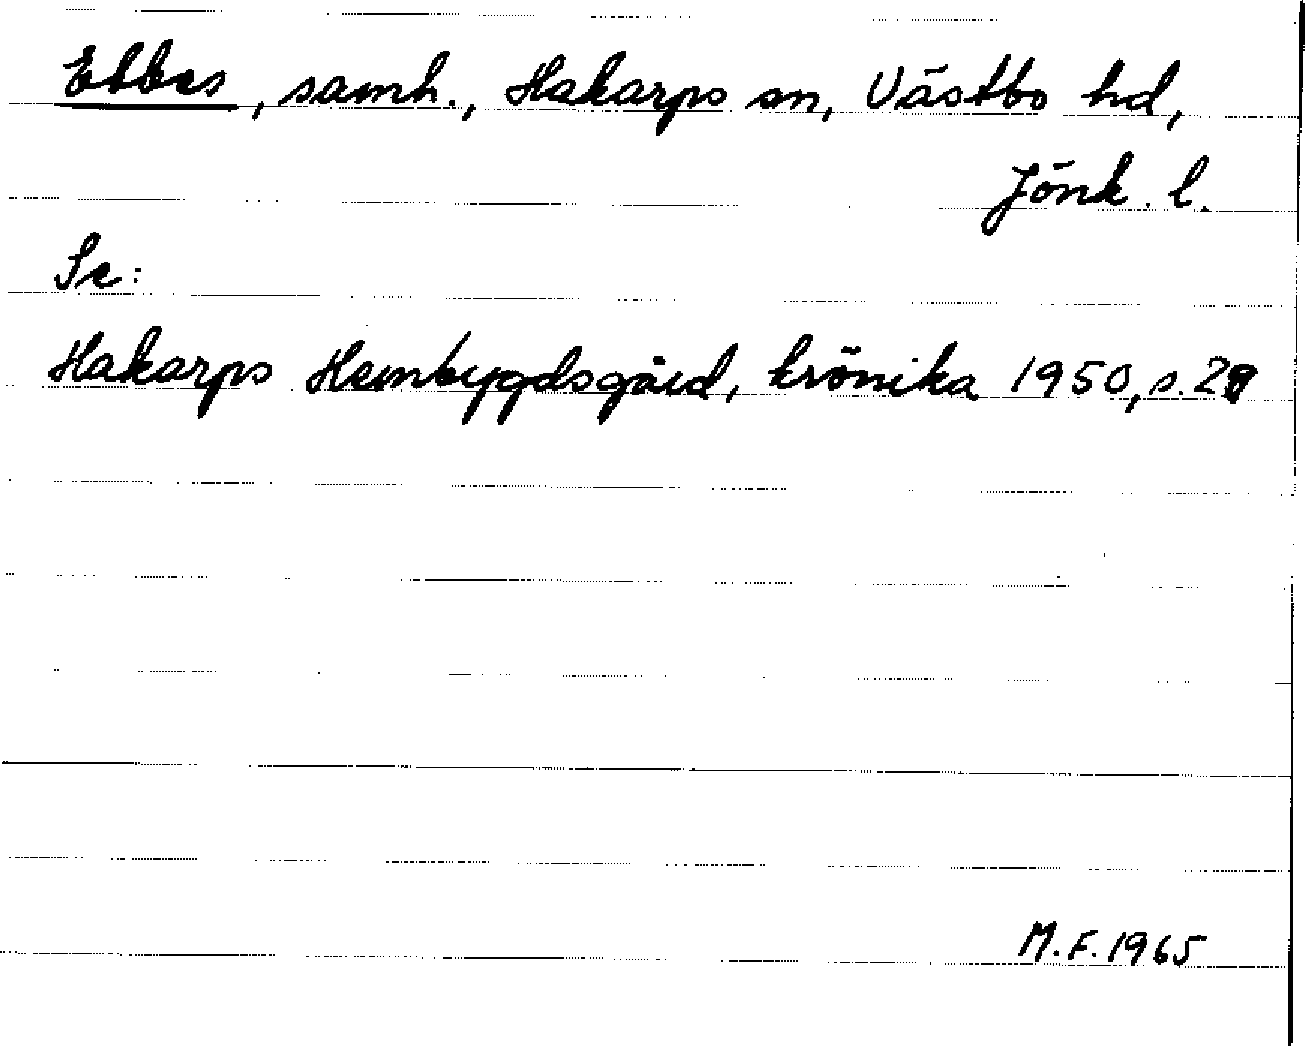 Ebbes, samh., Hakarps sn, Västbo hd,
Jönk. l.
Se:
Hakarps Hembygdsgård, krönika 1950, s.
M.F. 1965